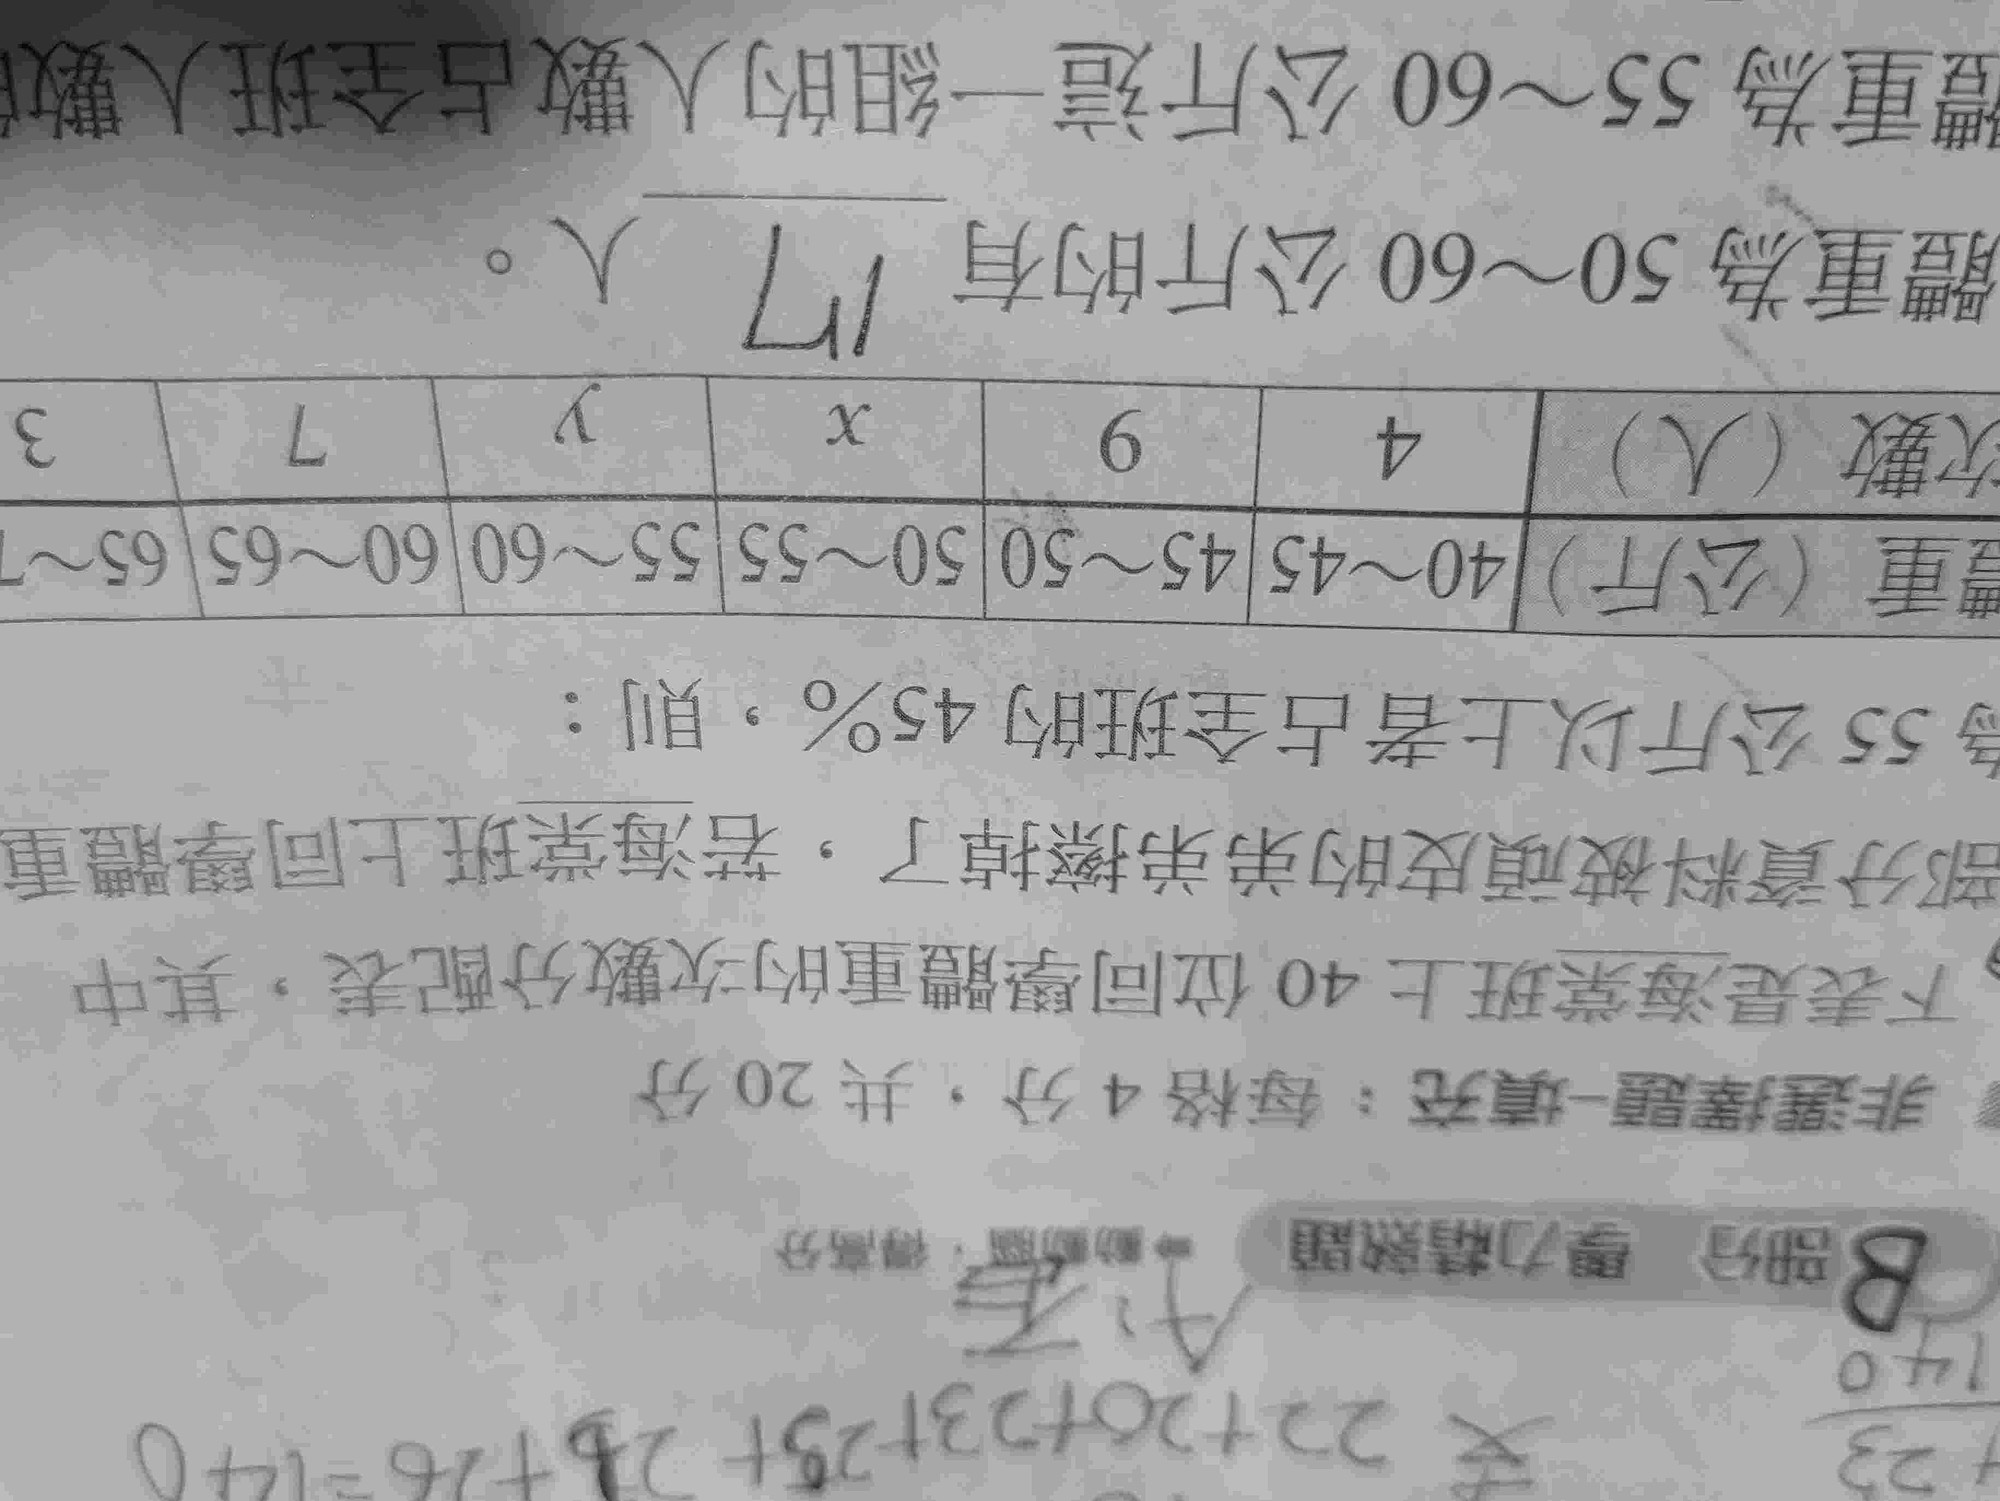 + 23
140
22+20+23+25+
+26=140
B 部分 學力精熟題 動動腦,得高分
非選擇題-填充:每格 4 分,共 20 分
下表是海棠班上 40 位同學體重的次數分配表,其中
部分資料被頑皮的弟弟擦掉了,若海棠班上同學體重
為 55 公斤以上者占全班的 45%,則:
體重(公斤) 40~45 45~50 50~55 55~60 60~65 65~7
次數(人) 4 9 x y 7 3
體重為 50~60 公斤的有 17 人。
體重為 55~60 公斤這一組的人數占全班人數的